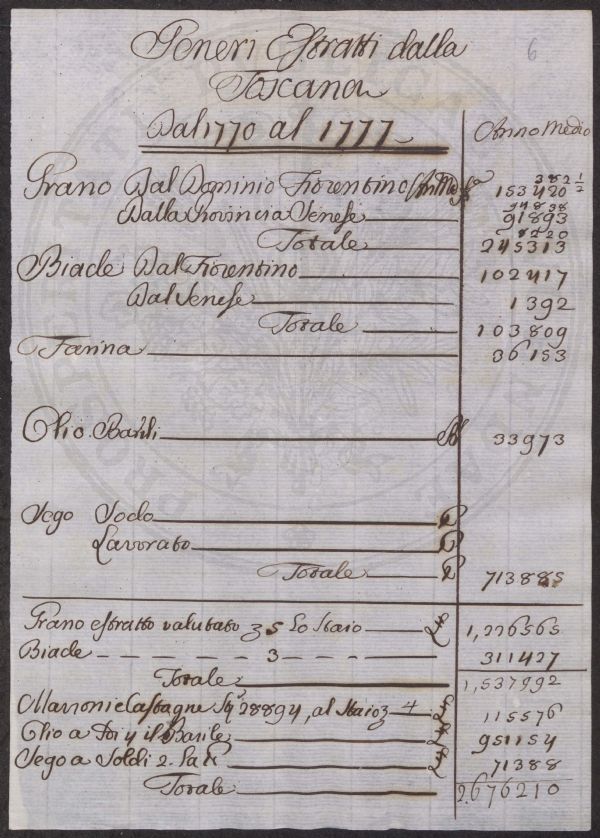 6
Generi Estratti dalla
Toscana
Dal 1770 al 1777
Anno Medio
Grano Dal Dominio Fiorentino 382 1/2 153420
Dalla Provincia Senese 94838 91893
Totale 8220 245313
Biade Dal Fiorentino 102417
Dal Senese 1392
Totale 103809
Farina 36153
Olio Barili 33973
Sego Sodo
Lavorato
Totale 713885
Grano estratto valutato 3 5 Lo Staio 1,226565
Biade 3 311427
Totale 1,537992
Marroni e Castagne 28894, al Staio 4 115576
Olio a il Barile 951154
Sego a Soldi 2. La 71388
Totale 2,676210